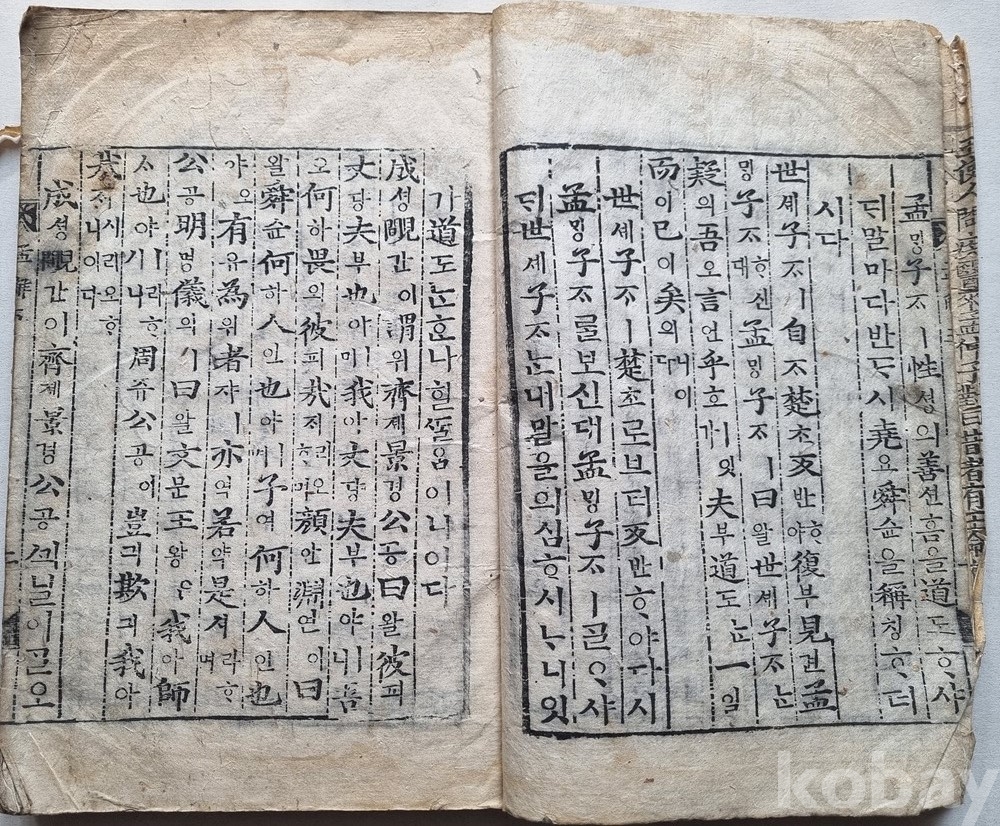 王使人問疾醫來孟仲子對曰昔者有王命
孟ᄆᆡᆼ子ᄌᆞㅣ性셩의善션홈을道도ᄒᆞ샤
ᄃᆡ말마다반ᄃᆞ시堯요舜슌을稱칭ᄒᆞ더
시다
世셰子ᄌᆞㅣ自ᄌᆞ楚초反반ᄒᆞ야復부見견孟
ᄆᆡᆼ子ᄌᆞᄒᆞ신대孟ᄆᆡᆼ子ᄌᆞㅣ曰왈世셰子ᄌᆞᄂᆞᆫ
疑의吾오言언乎호ㅣ잇가夫부道도ᄂᆞᆫ一일
而이已이矣의니이다
世셰子ᄌᆞㅣ楚초로브터反반ᄒᆞ야다시
孟ᄆᆡᆼ子ᄌᆞᄅᆞᆯ보신대孟ᄆᆡᆼ子ᄌᆞㅣᄀᆞᆯᄋᆞ샤
ᄃᆡ世셰子ᄌᆞᄂᆞᆫ내말을의심ᄒᆞ시ᄂᆞ니잇
가道도ᄂᆞᆫᄒᆞ나힐ᄯᆞᄅᆞᆷ이니이다
成셩覵간이謂위齊졔景경公공曰왈彼피
丈댱夫부也야ㅣ며我아丈댱夫부也야ㅣ니吾
오何하畏외彼피哉ᄌᆡ리오ᄒᆞ며顔안淵연이曰
왈舜슌何하人인也야ㅣ며予여何하人인也
야오有유爲위者쟈ㅣ亦역若약是시라ᄒᆞ며
公공明명儀의ㅣ曰왈文문王왕은我아師
ᄉᆞ也야ㅣ라ᄒᆞ니周쥬公공이豈긔欺긔我아
哉ᄌᆡ시리오ᄒᆞ니이다
成셩覵간이齊졔景경公공ᄭᅴ닐러ᄀᆞᆯ오
kobay